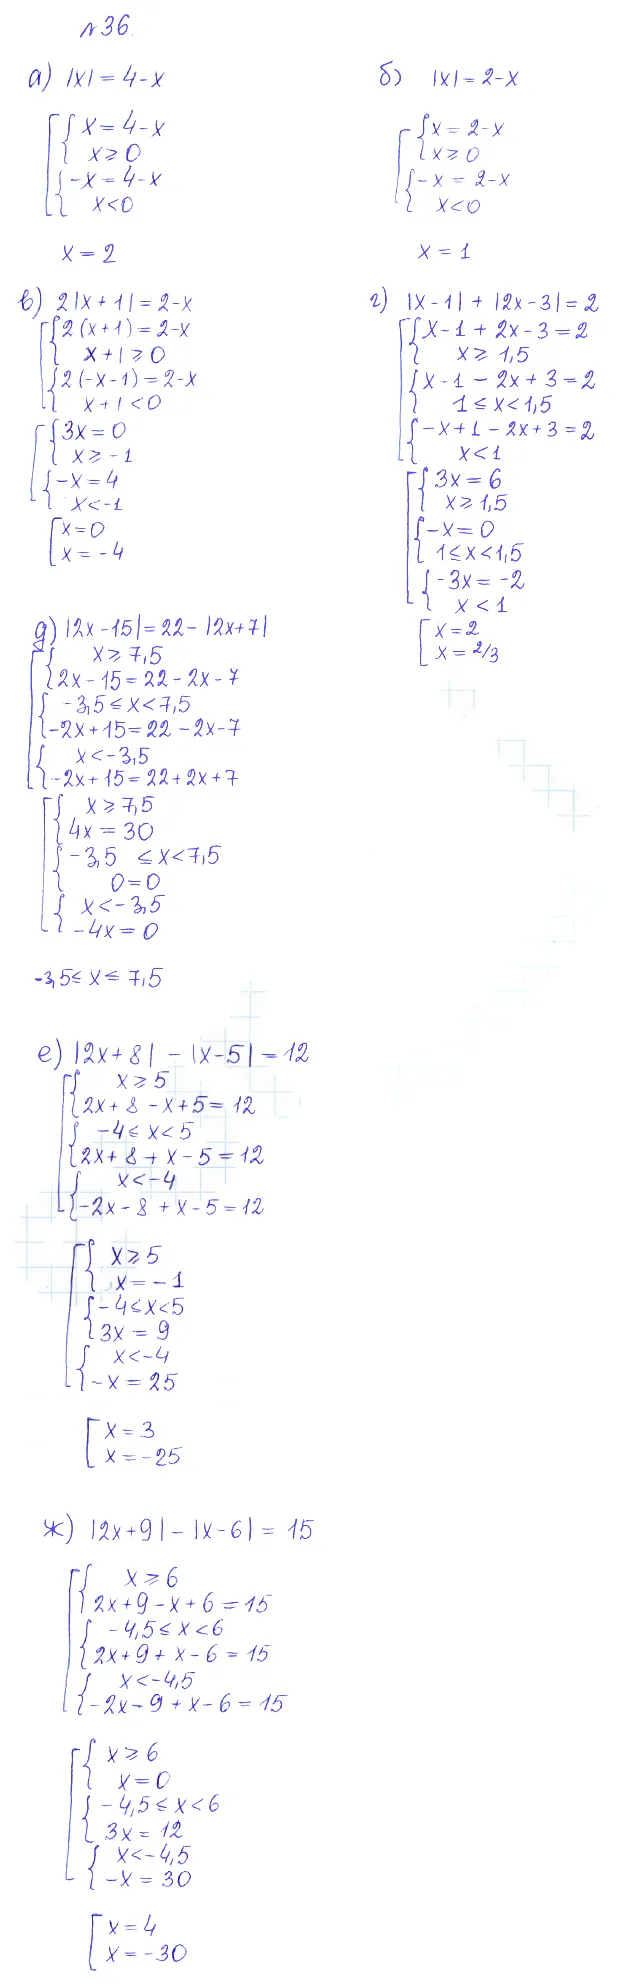 №36.
а) |x| = 4-x
x = 4-x
x ⩾ 0
-x = 4-x
x<0
x = 2
б) |x| = 2-x
x = 2-x
x ⩾ 0
-x = 2-x
x<0
x = 1
в) 2|x+1| = 2-x
2(x+1) = 2-x
x+1 ⩾ 0
2(-x-1) = 2-x
x+1 < 0
3x = 0
x ⩾ -1
-x = 4
x < -1
x = 0
x = -4
г) |x-1| + |2x-3| = 2
x-1 + 2x-3 = 2
x ⩾ 1,5
x-1 - 2x+3 = 2
1 ≤ x < 1,5
-x+1 - 2x+3 = 2
x < 1
3x = 6
x ⩾ 1,5
-x = 0
1 ≤ x < 1,5
-3x = -2
x < 1
x = 2
x = 2/3
д) |2x-15| = 22 - |2x+7|
x ⩾ 7,5
2x-15 = 22 - 2x - 7
-3,5 ≤ x < 7,5
-2x+15 = 22 - 2x - 7
x < -3,5
-2x+15 = 22 + 2x + 7
x ⩾ 7,5
4x = 30
-3,5 ≤ x < 7,5
0 = 0
x < -3,5
-4x = 0
-3,5 ≤ x ≤ 7,5
е) |2x+8| - |x-5| = 12
x ⩾ 5
2x+8 - x+5 = 12
-4 ≤ x < 5
2x+8 + x-5 = 12
x < -4
-2x-8 + x-5 = 12
x ⩾ 5
x = -1
-4 ≤ x < 5
3x = 9
x < -4
-x = 25
x = 3
x = -25
ж) |2x+9| - |x-6| = 15
x ⩾ 6
2x+9 - x+6 = 15
-4,5 ≤ x < 6
2x+9 + x-6 = 15
x < -4,5
-2x-9 + x-6 = 15
x ⩾ 6
x = 0
-4,5 ≤ x < 6
3x = 12
x < -4,5
-x = 30
x = 4
x = -30